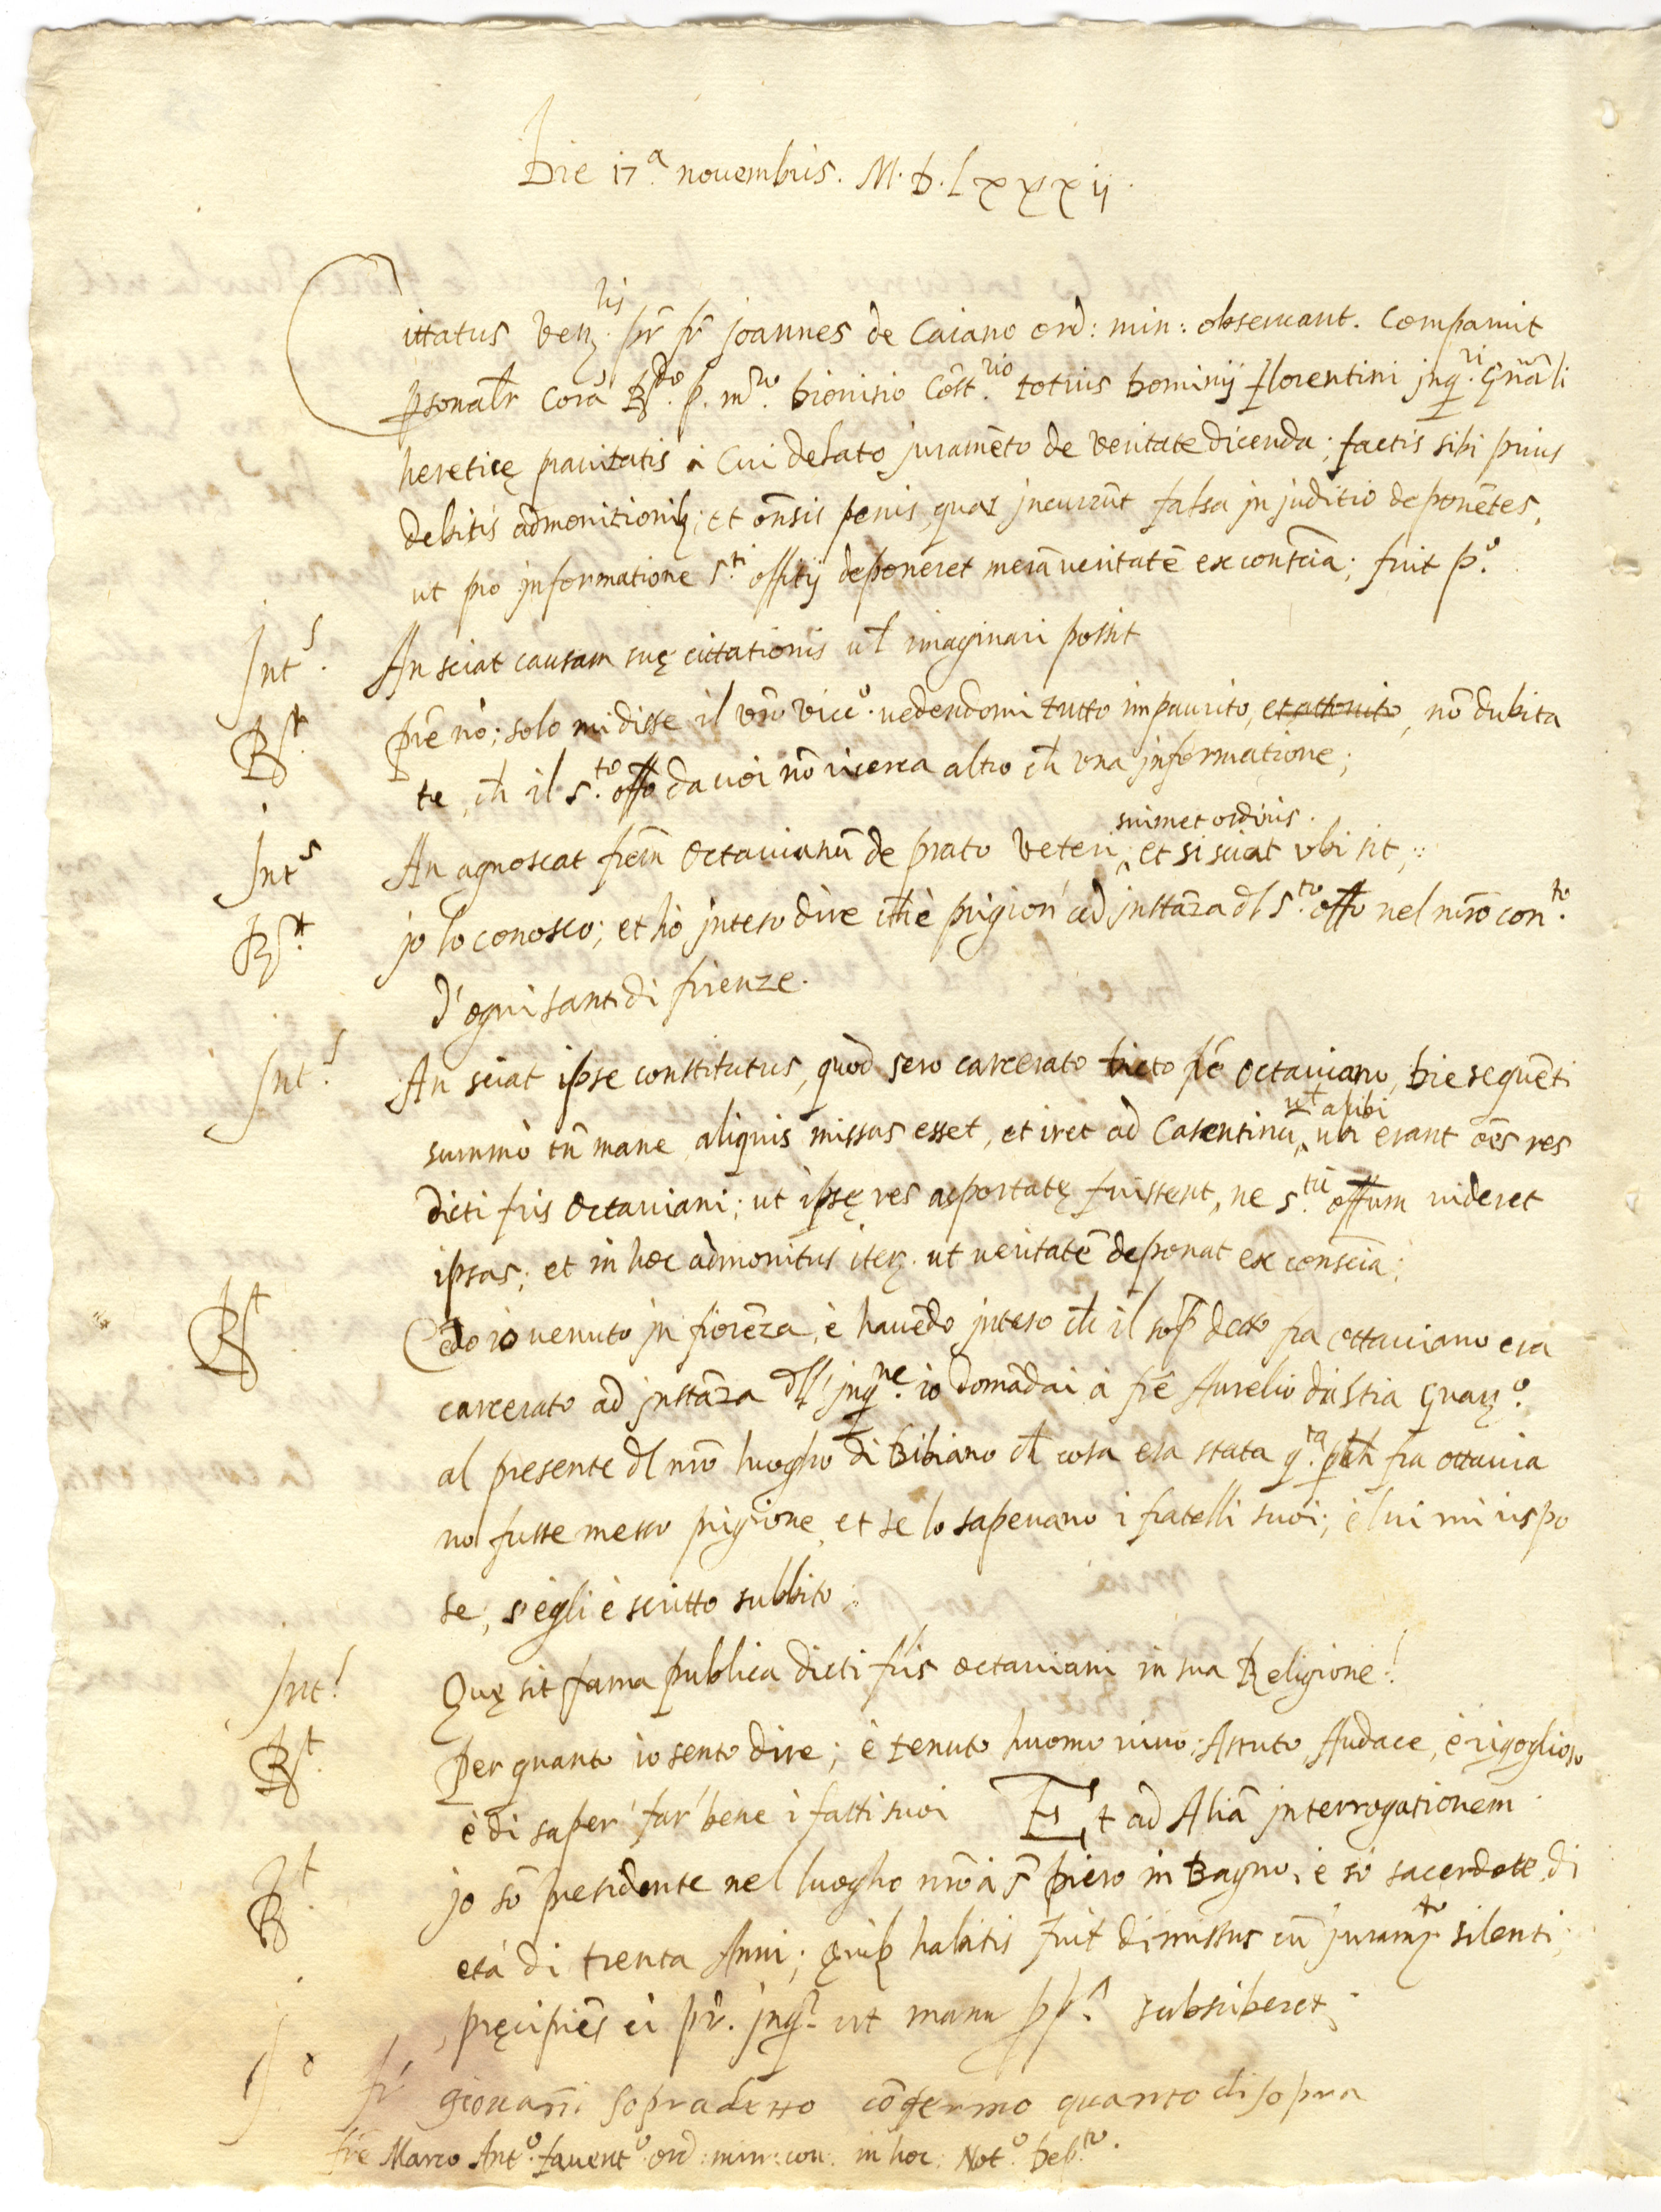 Die 17.a novembris. M.D.Lxxxij.
Cittatus Ven.lis pr̄ fr̄ Joannes de Caiano ord: min: observant. Comparuit
psonalr̄ Corā R.do p. m.ro Dionisio Cōst.rio totius Dominij Florentini jnq.ri Gn̄ali
heretice̜ pravitatis à Cui delato juramēto de veritate dicenda; factis sibi prius
debitis admonitionib; et on̄sis penis, quas jncurrūt falsa jn juditio deponētes,
ut pro jnformatione S.ti offitij deponeret merā veritatē ex consc̄ia; fuit p.o
Jnt.s An sciat causam sue̜ cittationis ul̄ imaginari possit
R.t pr̄e nò; solo mi disse il vr̄o vice.o vedendomi tutto impaurito, et attonito, nō dubita
te, ch̄ il S.to offo da voi nō ricerca altro ch̄ una jnformatione;
suimet ordinis.
Jnt.s An agnoscat frēm Octavianū de prato Veteri, et si sciat ubi sit;
R.t jo lo conosco; et hò jnteso dire ch̄ è prigion' ad jnstāza dl S.to offo nel nr̄o con.to
d'ogni santi di firenze.
Jnt.s An sciat ipse constitutus, quòd sero carcerato dicto frē Octaviano, die sequēti
ul̄ alibi
summò tn̄ mane aliquis missus esset, et iret ad Casentinū, ubi erant oēs res
dicti fris Octaviani; ut ipse̜ res asportate̜ fuissent, ne S.tū offum videret
ipsas; et in hoc admonitus iter. ut veritatē deponat ex consc̄ia;
R.t Cēdo io venuto jn fiorēza, è havēdo jnteso ch̄ il sop̄ detto fra ottaviano era
carcerato ad jnstāza dll' jnq.ne io domādai à frē Aurelio da Stia Guar.o
al presente dl nr̄o luogho di Bibiano ch̄ cosa era stata q.ta pch̄ fra ottavia
no fusse messo prigione, et se lo sapevano i fratelli suoi; è lui mi rispo
se, s'egli è scritto subbito;
Jnt.s Que̜ sit fama publica dicti fris Octaviani in sua Religione!
R.t Per quanto io sento dire; è tenuto huomo vivo. Astuto Audace, è rigoglioso
è di saper' far' bene i fatti suoi Et ad Aliā jnterrogationem
R.t jo sō presidente nel luogho nr̄o à S. piero in Bagno, è sō sacerdote, di
età di trenta Anni; quib habitis fuit dimissus cū juram.to silenti,
pre̜cipiēs ei pr̄. jnq.r ut manu pp.a subsciberet;
fr̄ giovan̄i sopradetto cōfermo quanto di sopra
frē Marco Ant.o favent.o ord: min: con: in hoc: Not.o Dep.to.